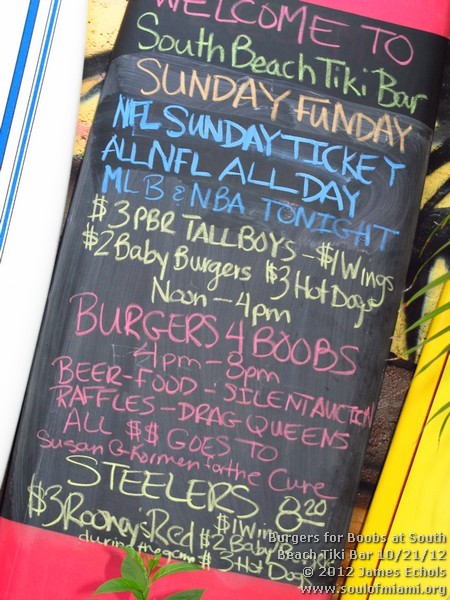 WELCOME TO
South Beach Tiki Bar
SUNDAY FUNDAY
NFL SUNDAY TICKET
ALL NFL ALL DAY
MLB & NBA TONIGHT
$3 PBR TALL BOYS - $1 Wings
$2 Baby Burgers $3 Hot Dogs
Noon - 4pm
BURGERS 4 BOOBS
4pm - 8pm
BEER - FOOD - SILENT AUCTION
RAFFLES - DRAG QUEENS
ALL $$ GOES TO
Susan G Kormen for the Cure
STEELERS 8:20
$3 Rooney's Red $1 Wings
$2 Baby
during the game $3 Hot Dogs
Burgers for Boobs at South
Beach Tiki Bar 10/21/12
© 2012 James Echols
www.soulofmiami.org